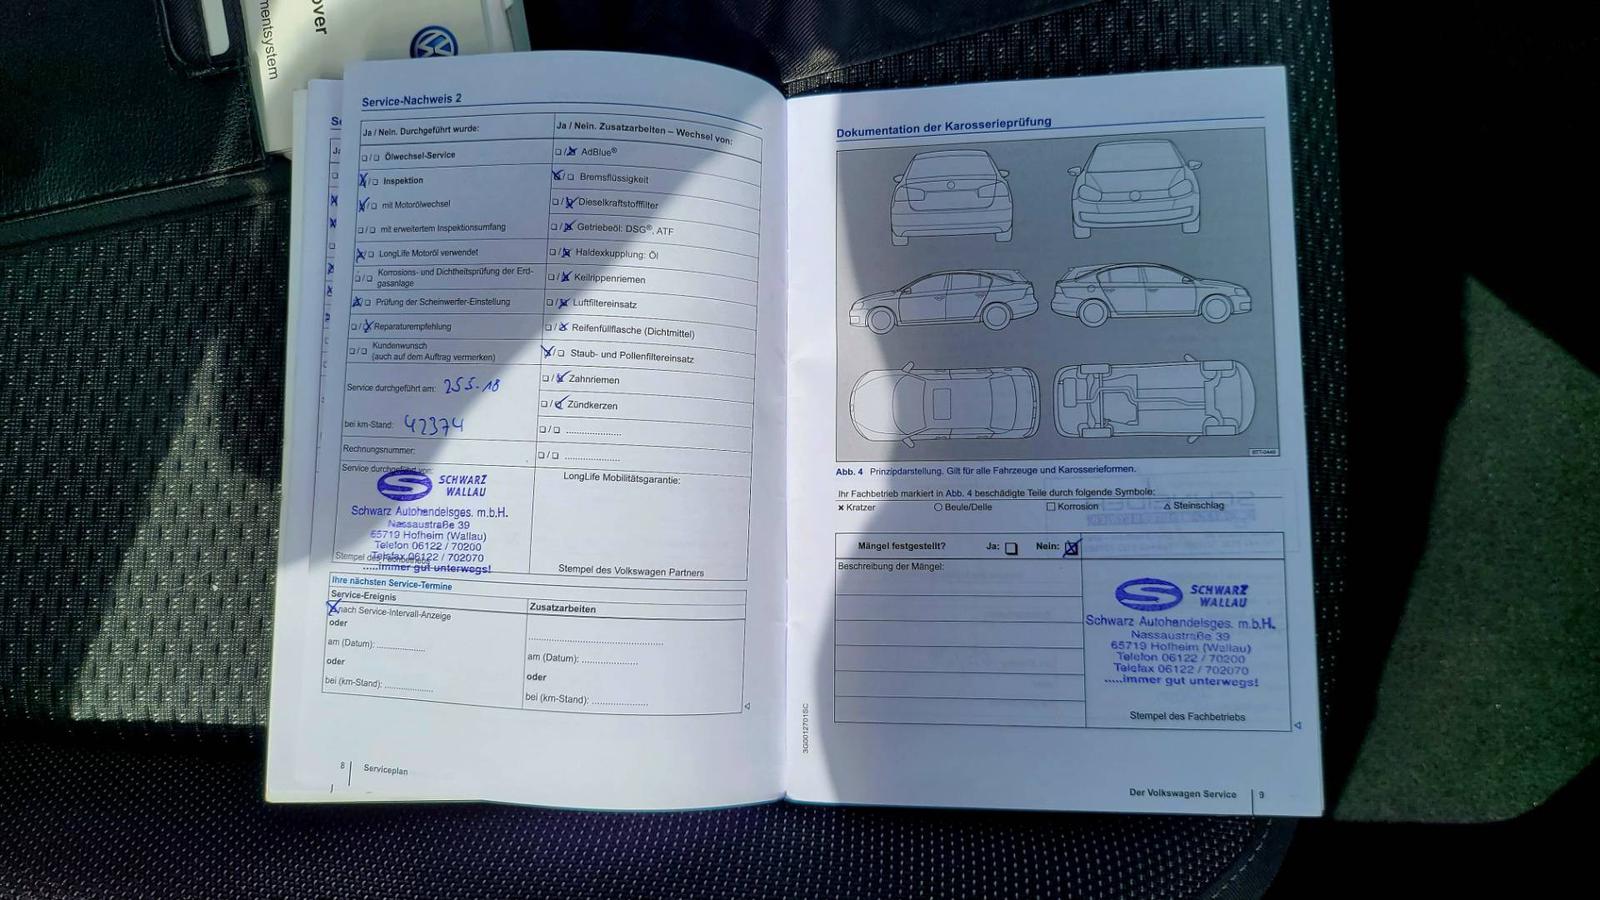 over
mentsystem
Service-Nachweis 2
Ja / Nein. Durchgeführt wurde:
Ölwechsel-Service
Inspektion
mit Motorölwechsel
mit erweitertem Inspektionsumfang
LongLife Motoröl verwendet
Korrosions- und Dichtheitsprüfung der Erd-
gasanlage
Prüfung der Scheinwerfer-Einstellung
Reparaturempfehlung
Kundenwunsch
(auch auf dem Auftrag vermerken)
Service durchgeführt am: 255-18
bei km-Stand: 42374
Rechnungsnummer:
Service durchgeführt von:
SCHWARZ
WALLAU
Schwarz Autohandelsges. m.b.H.
Nassaustraße 39
65719 Hofheim (Wallau)
Telefon 06122 / 70200
Telefax 06122 / 702070
Stempel des Fachbetriebs
.....immer gut unterwegs!
Ja / Nein. Zusatzarbeiten – Wechsel von:
AdBlue®
Bremsflüssigkeit
Dieselkraftstofffilter
Getriebeöl: DSG®, ATF
Haldexkupplung: Öl
Keilrippenriemen
Luftfiltereinsatz
Reifenfüllflasche (Dichtmittel)
Staub- und Pollenfiltereinsatz
Zahnriemen
Zündkerzen
LongLife Mobilitätsgarantie:
Stempel des Volkswagen Partners
Ihre nächsten Service-Termine
Service-Ereignis
nach Service-Intervall-Anzeige
oder
am (Datum): ....................
oder
bei (km-Stand): ....................
Zusatzarbeiten
am (Datum): ....................
oder
bei (km-Stand): ....................
8 Serviceplan
Dokumentation der Karosserieprüfung
BTT-0449
Abb. 4 Prinzipdarstellung. Gilt für alle Fahrzeuge und Karosserieformen.
Ihr Fachbetrieb markiert in Abb. 4 beschädigte Teile durch folgende Symbole:
× Kratzer ○ Beule/Delle □ Korrosion △ Steinschlag
Mängel festgestellt? Ja: Nein:
Beschreibung der Mängel:
SCHWARZ
WALLAU
Schwarz Autohandelsges. m.b.H.
Nassaustraße 39
65719 Hofheim (Wallau)
Telefon 06122 / 70200
Telefax 06122 / 702070
.....immer gut unterwegs!
Stempel des Fachbetriebs
3G0012701SC
Der Volkswagen Service 9